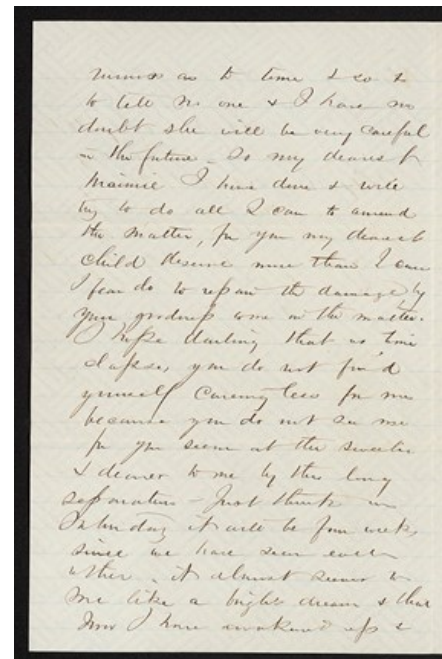 as to time & so &
to tell no one & I have no
doubt she will be very careful
in the future - So my dearest
Maimie I have done & will
try to do all I can to amend
the matter, for you my dearest
child deserve more than I can
I fear do to repair the damage by
your goodness in the matter.
I hope darling that as time
elapses, you do not find
yourself caring less for me
because you do not see me
for you seem all the sweeter
& dearer to me by this long
separation - Just think on
Saturday it will be four weeks
since we have seen each
other. it almost seems to
me like a bright dream & that
now I have awaken'd up &